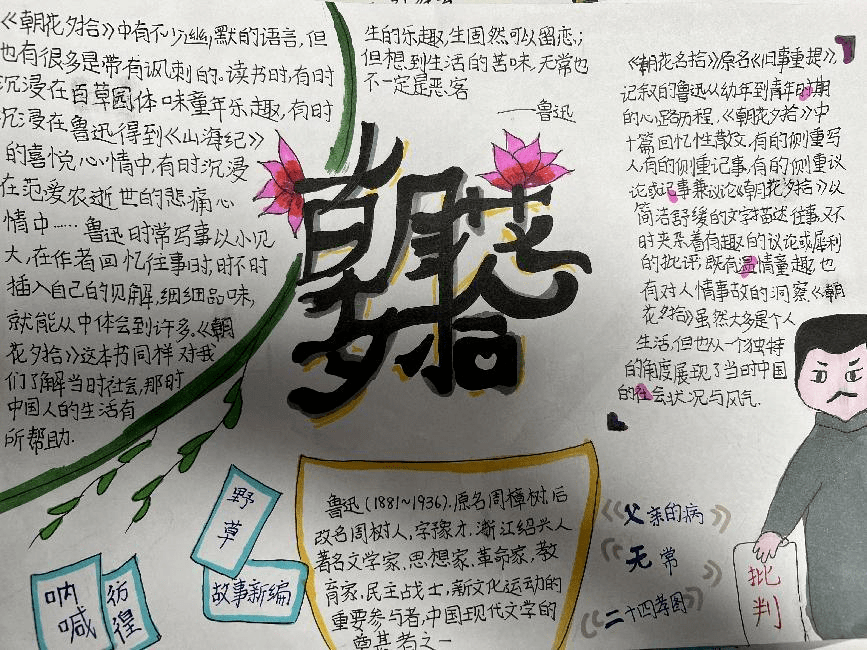 《朝花夕拾》中有不少幽默的语言,但
也有很多是带有讽刺的。读书时,有时
沉浸在百草园体味童年乐趣,有时
沉浸在鲁迅得到《山海纪》
的喜悦心情中,有时沉浸
在范爱农逝世的悲痛心
情中……鲁迅时常写事以小见
大,在作者回忆往事时,时不时
插入自己的见解,细细品味,
就能从中体会到许多。《朝
花夕拾》这本书同样对我
们了解当时社会,那时
中国人的生活有
所帮助.
生的乐趣,生固然可以留恋;
但想到生活的苦味,无常也
不一定是恶客
——鲁迅
朝花夕拾
《朝花名拾》原名《旧事重提》,
记叙的鲁迅从幼年到青年时期
的心路历程,《朝花夕拾》中
十篇回忆性散文,有的侧重写
人,有的侧重记事,有的侧重议
论或记事兼议论《朝花夕拾》以
简洁舒缓的文字描述往事,又不
时夹杂着有趣的议论或犀利
的批评,既有温情童趣也
有对人情事故的洞察《朝
花夕拾》虽然大多是个人
生活,但也从一个独特
的角度展现了当时中国
的社会状况与风气.
野草
故事新编
呐喊
彷徨
鲁迅(1881~1936),原名周樟树,后
改名周树人,字豫才,浙江绍兴人
著名文学家、思想家、革命家、教
育家、民主战士,新文化运动的
重要参与者,中国现代文学的
奠基者之一
《父亲的病》
《无常》
《二十四孝图》
批判